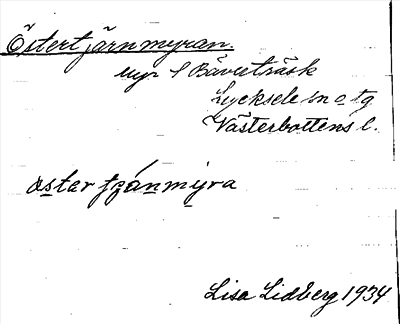 Östertjärnmyran.
Myr i Bäverträsk
Lycksele sn o tg
Västerbottens l.
østartjǽnmýra
Lisa Lidberg 1934